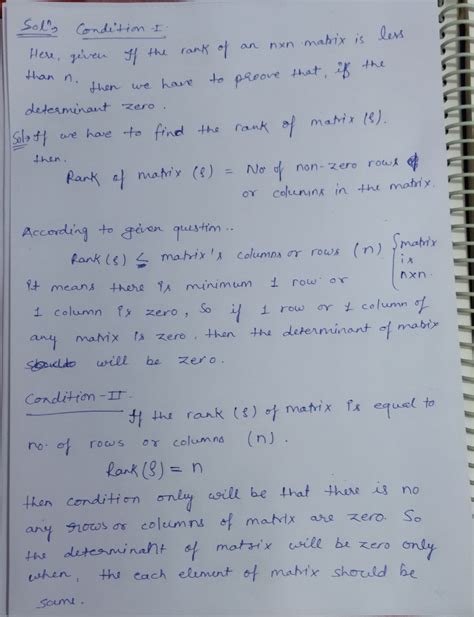 Solⁿ→ Condition-I.
Here, given If the rank of an nxn matrix is less
than n, then we have to proove that, if the
determinant zero.
Sol→ If we have to find the rank of matrix (ρ).
then.
Rank of matrix (ρ) = No of non-zero rows
or columns in the matrix.
According to given questim..
Rank(ρ) ≤ matrix's columns or rows (n) {matrix
is
nxn.
it means there is minimum 1 row or
1 column is zero, So if 1 row or 1 column of
any matrix is zero. then the determinant of matrix
will be zero.
Condition-II.
If the rank (ρ) of matrix is equal to
no. of rows or columns (n).
Rank(ρ) = n
then condition only will be that there is no
any rows or columns of matrix are zero. So
the determinant of matrix will be zero only
when, the each element of matrix should be
same.